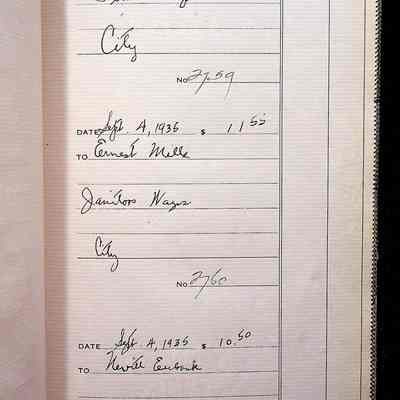 City
No 2759
DATE Sept. 4, 1935 $ 11 55
TO Ernest Mells
Janitors Wages
City
No 2760
DATE Sept. 4, 1935 $ 10.50
TO Nevill Eubank